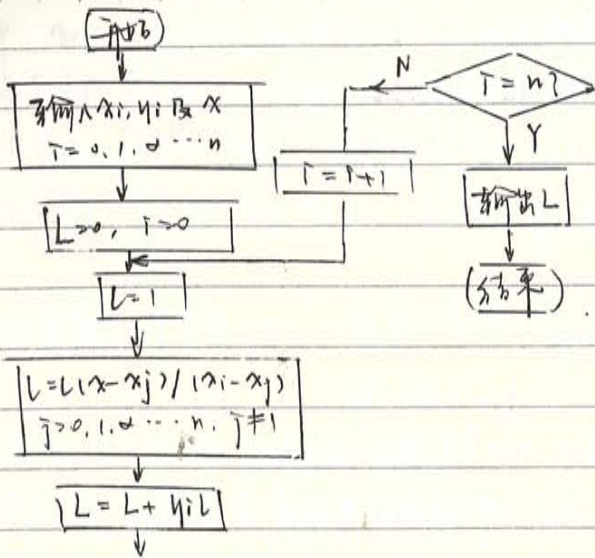 开始
输入xi, yi及x
i=0,1,2…n
L=0, i=0
l=1
l=l(x-xj)/(xi-xj)
j=0,1,2…n, j≠i
L=L+yil
i=n?
N
Y
i=i+1
输出L
(结束)